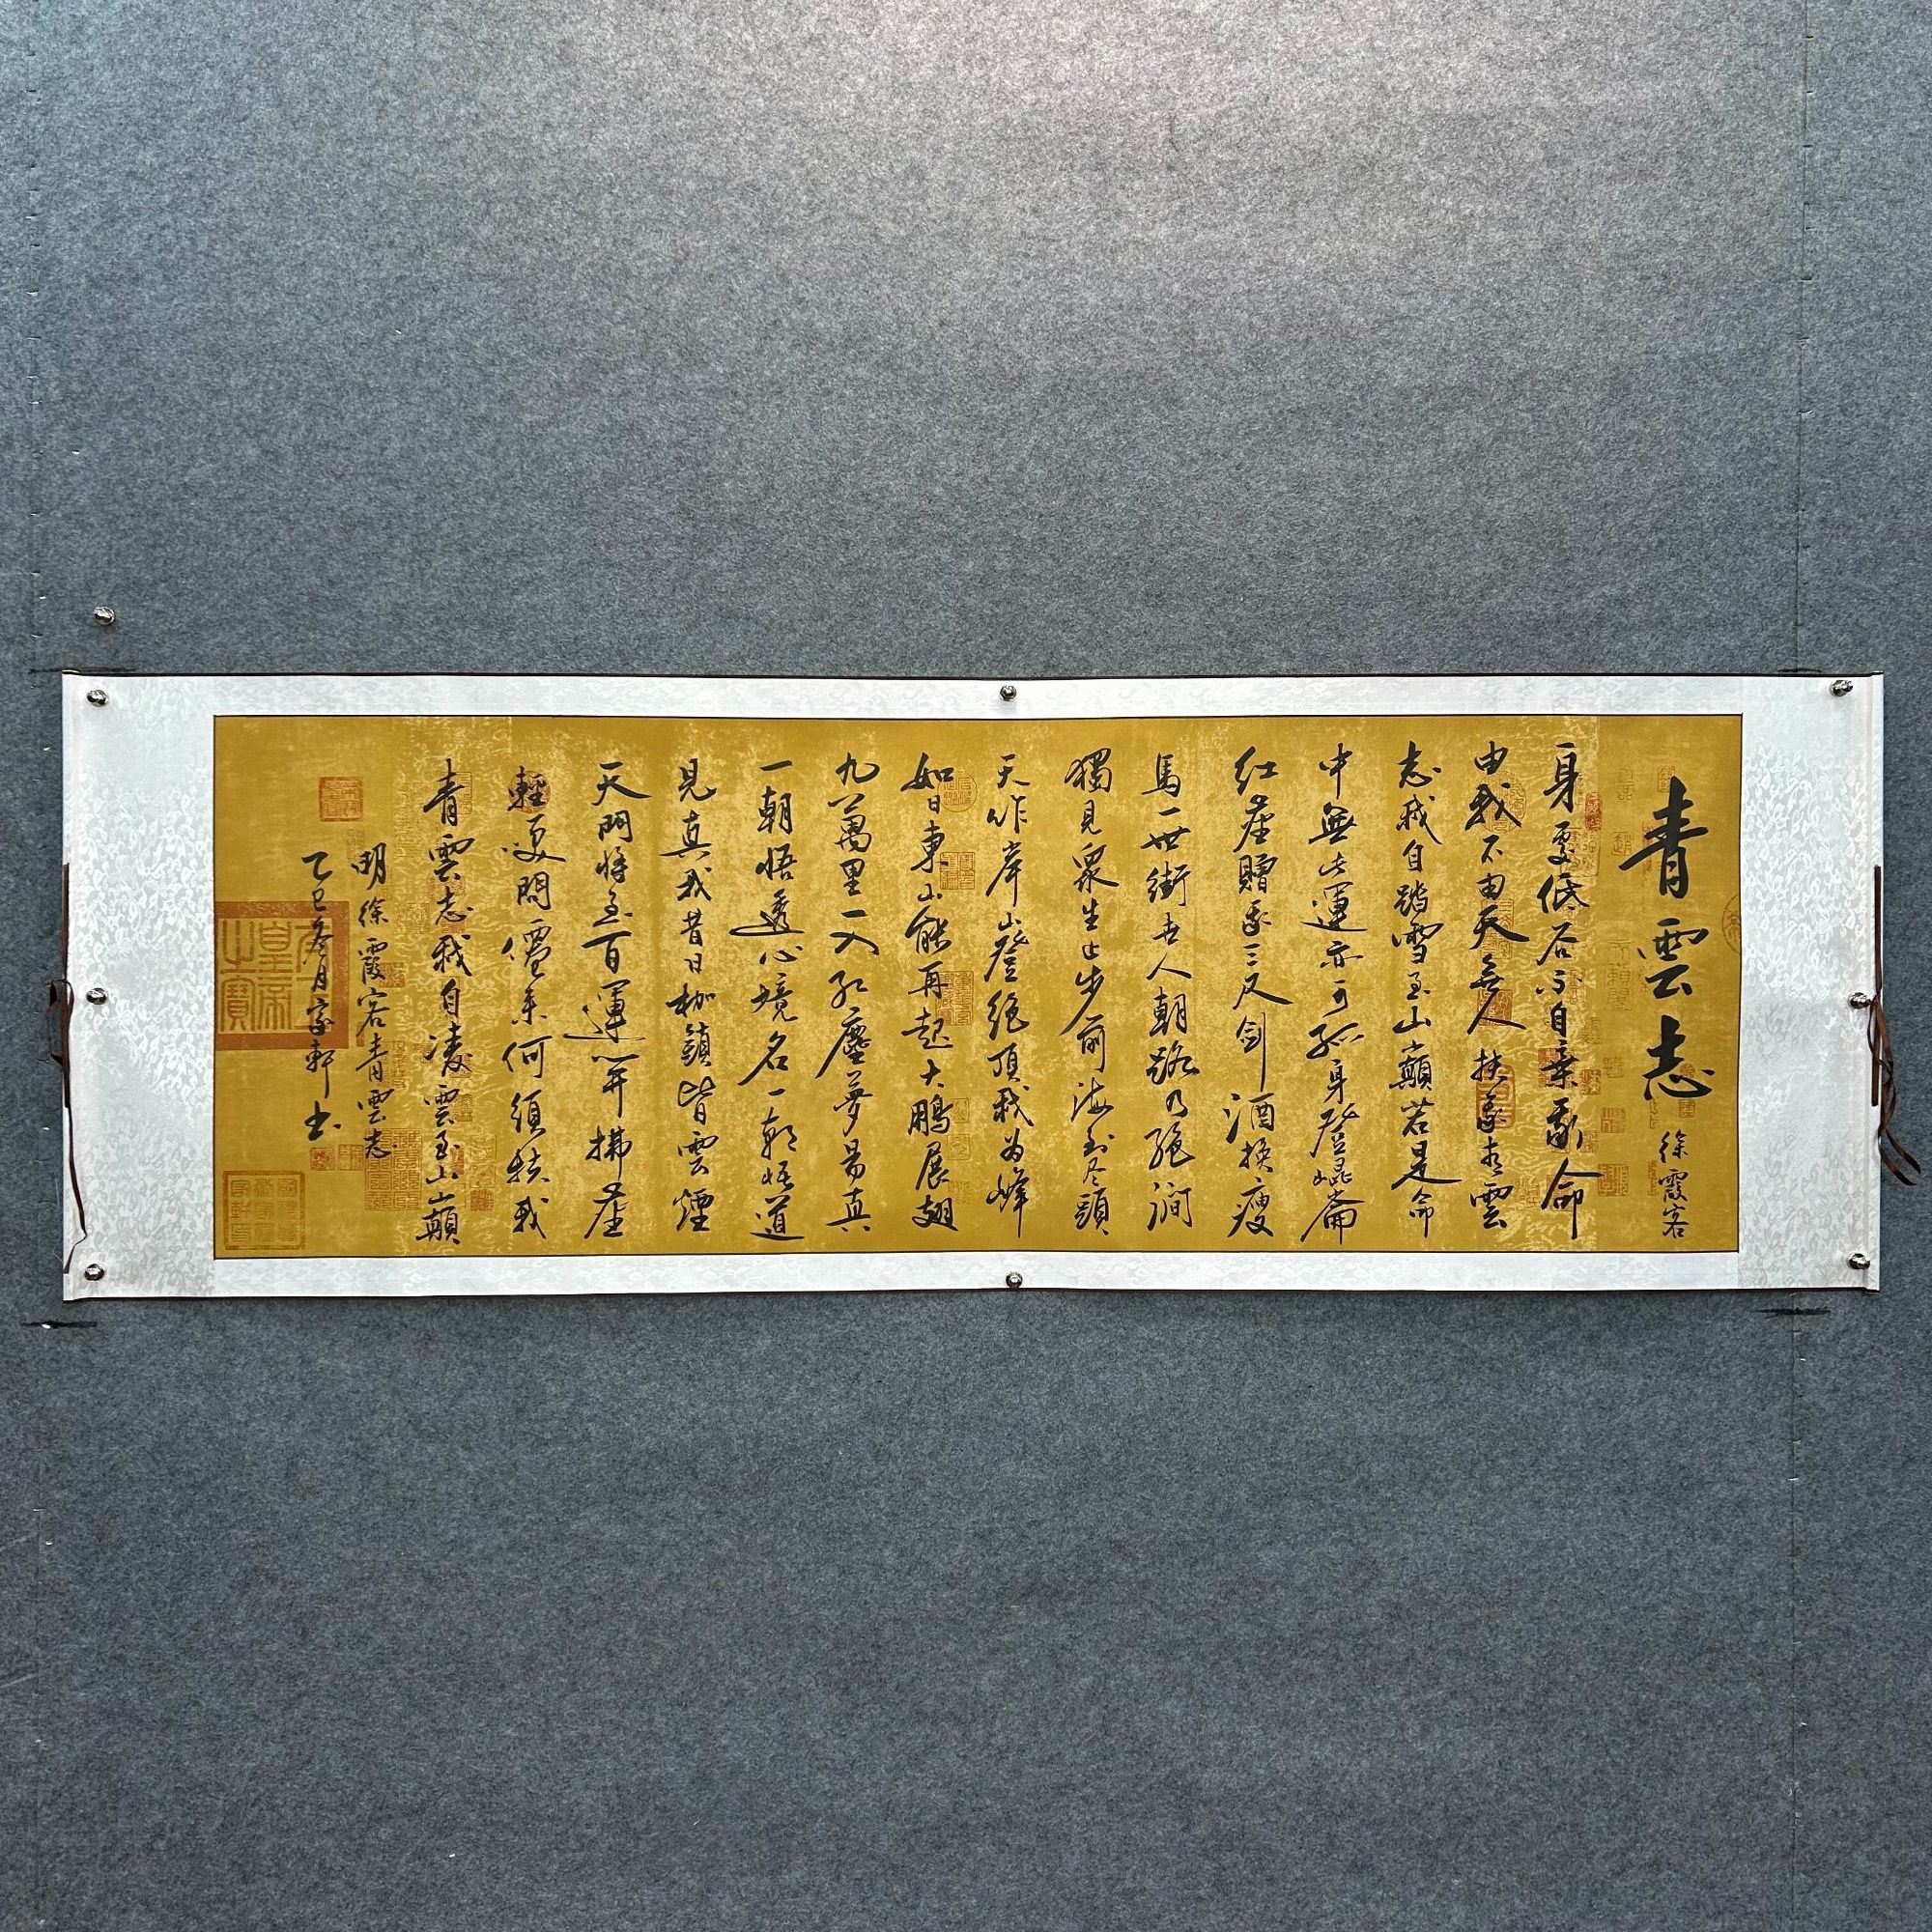 青雲志
徐霞客
身處低谷不自棄我命
由我不由天無人扶我青雲
志我自踏雪至山巔若是命
中無此運亦可孤身登崐崙
红塵贈我三尺劍酒換瘦
馬一世街世人朝路乃絕澗
獨見眾生止步前海到尽頭
天作岸山登絕頂我为峰
如日東山能再起大鵬展翅
九萬里一入红塵夢易真
一朝悟透心境名一朝悟道
見真我昔日枷鎖皆雲煙
天門將至百運開拂塵
輕嘆問儒來何須扶我
青雲志我自凌雲至山巔
明徐霞客青雲志
乙巳叁月家軒书